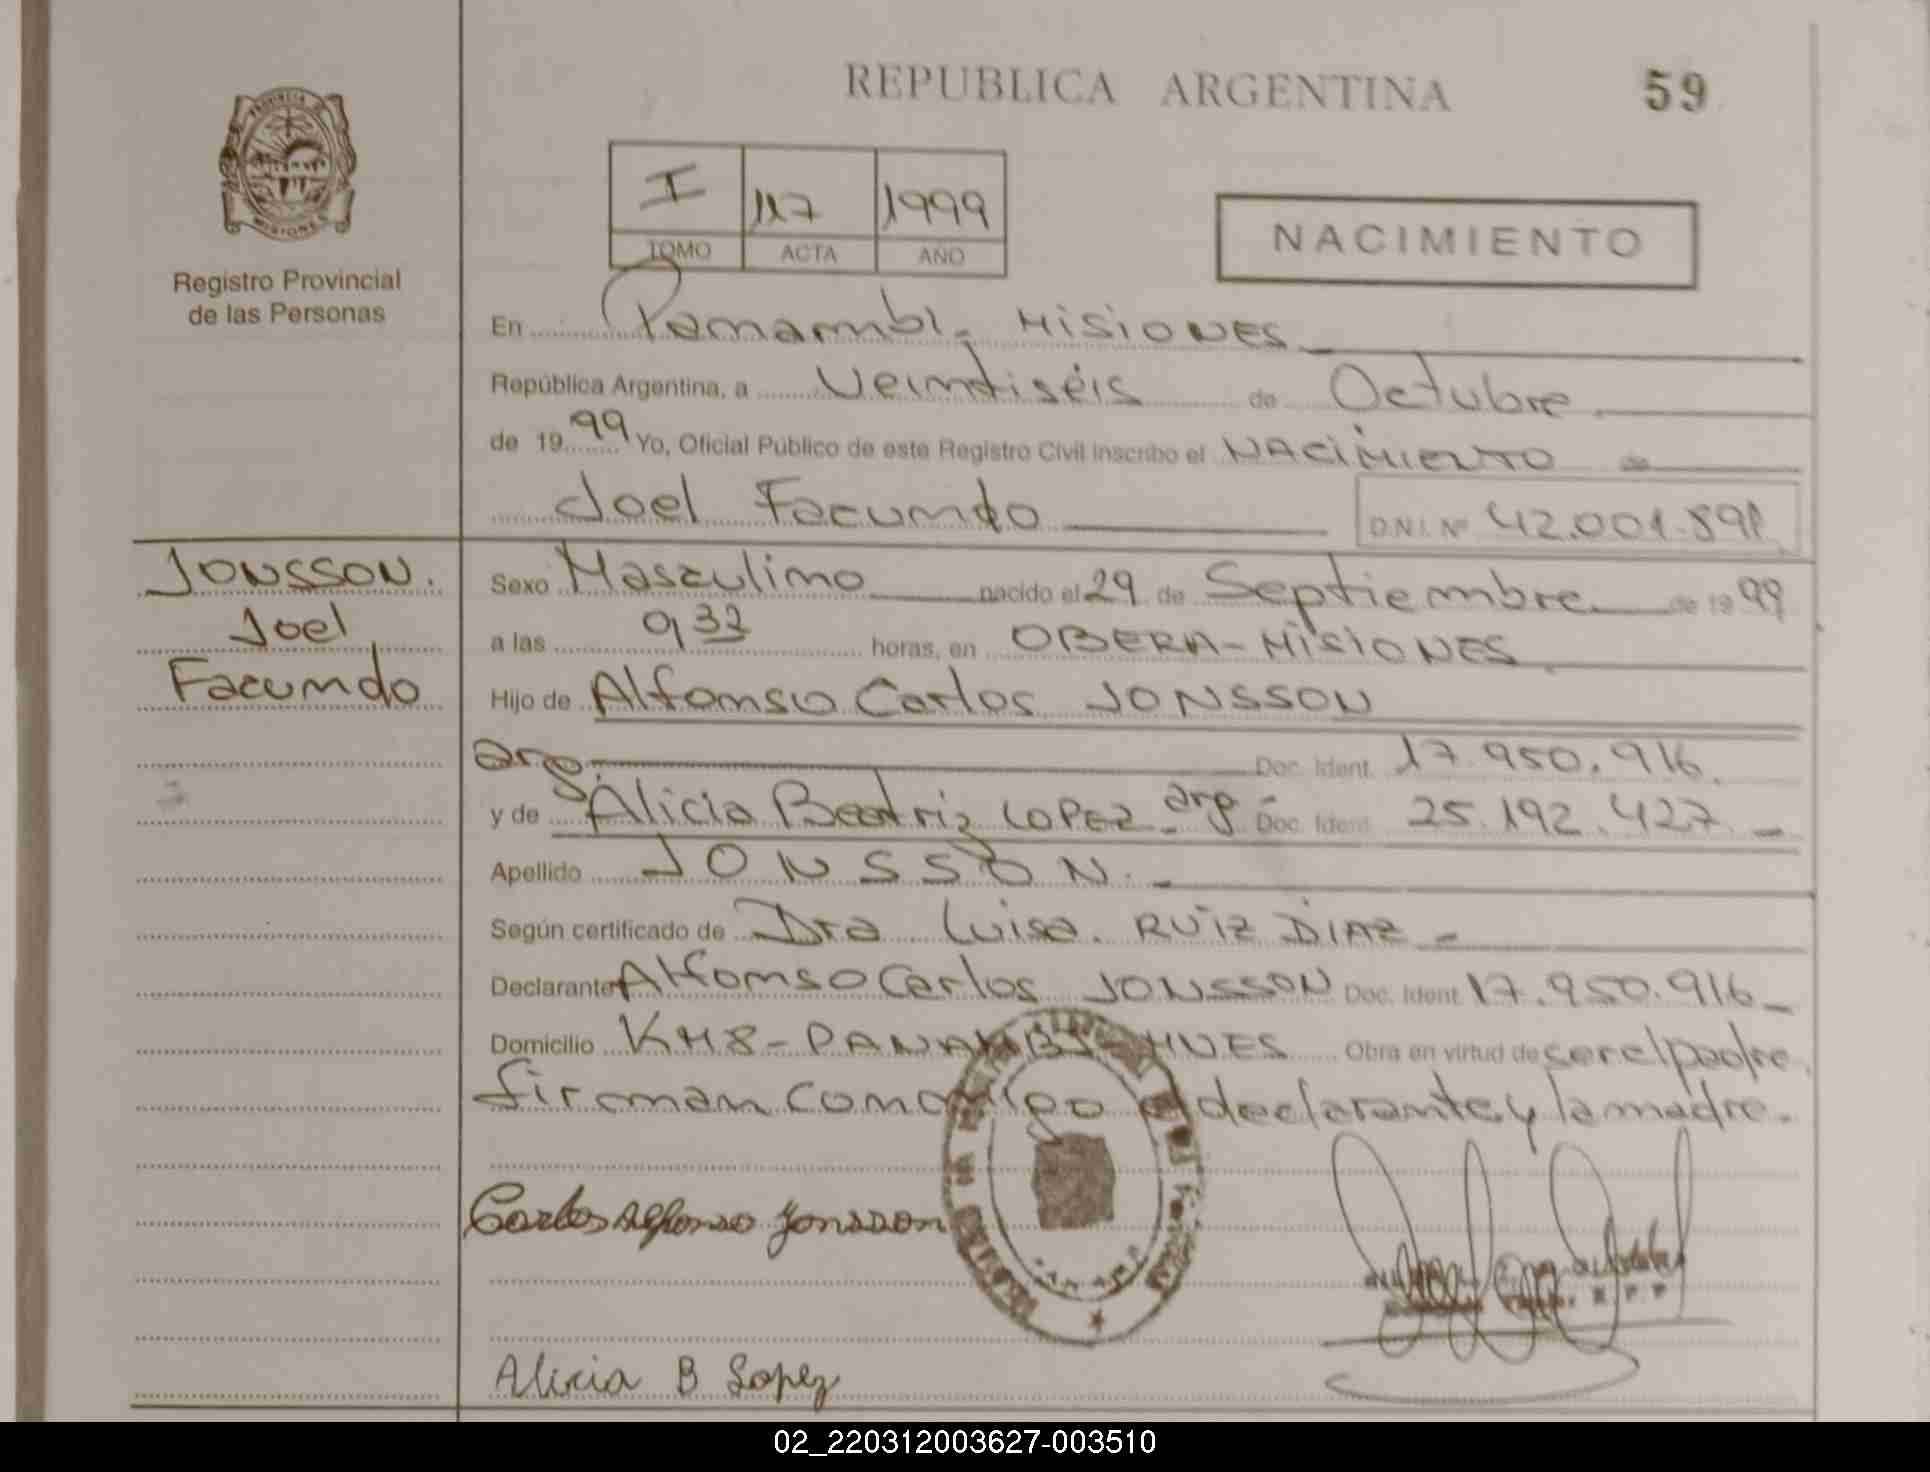 REPUBLICA ARGENTINA
59
PROVINCIA
MISIONES
Registro Provincial
de las Personas
I 117 1999
TOMO ACTA AÑO
NACIMIENTO
En Panambi - Misiones
República Argentina, a Veintiséis de Octubre
de 1999 Yo, Oficial Público de este Registro Civil inscribo el NACIMIENTO de
Joel Facundo D.N.I. Nº 42.001.891
JONSSON.
Joel
Facundo
Sexo Masculino nacido el 29 de Septiembre de 1999
a las 9 37 horas, en OBERA - MISIONES
Hijo de Alfonso Carlos JONSSON
arg. Doc. Ident. 17.950.916.
y de Alicia Beatriz LOPEZ - arg - Doc. Ident. 25.192.427 -
Apellido JONSSON. -
Según certificado de Dra Luisa. RUIZ DIAZ -
Declarante Alfonso Carlos JONSSON Doc. Ident 17.950.916 -
Domicilio KM 8 - PANAMBI - MNES Obra en virtud de ser el padre
firman conmigo el declarante y la madre.
Carlos Alfonso Jonsson
Alicia B Lopez
02_220312003627-003510